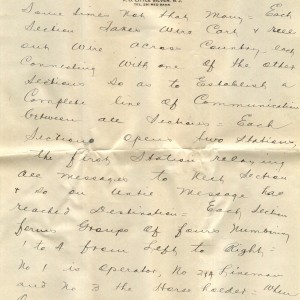 LITTLE SILVER, N.J.
TEL. 321 RED BANK
Some times not that many = Each
Section Takes Wire Cart & reels
out Wire across Country each
Connecting with one of the other
Sections so as to Establish a
Complete line of Communication
between all Sections = Each
Section opens two Stations,
the first Station relaying
all messages to Next Section
& so on Untill Message has
reached Destination = Each Section
forms Groups of fours Numbering
1 to 4 from Left to Right =
No 1 is Operator, No 2+4 Lineman
and No 3 the Horse holder = When